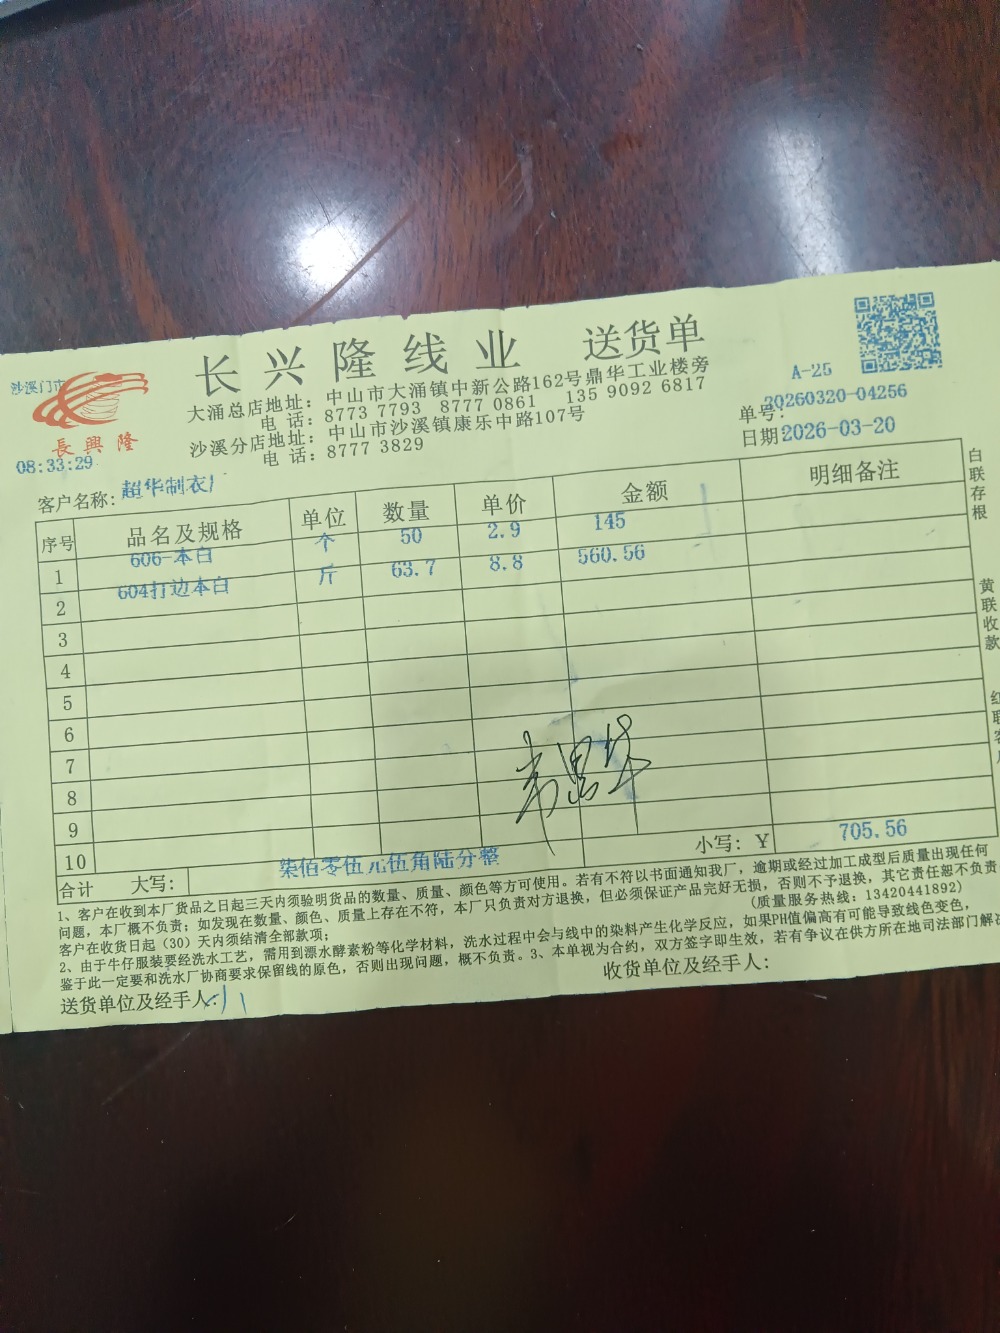 长兴隆线业 送货单
A-25
沙溪门市
長興隆
08:33:29
大涌总店地址：中山市大涌镇中新公路162号鼎华工业楼旁
电 话：8773 7793 8777 0861 135 9092 6817
沙溪分店地址：中山市沙溪镇康乐中路107号
电 话：8777 3829
单号：20260320-04256
日期2026-03-20
客户名称：超华制衣厂
序号 品名及规格 单位 数量 单价 金额 明细备注
1 606-本白 个 50 2.9 145
2 604打边本白 斤 63.7 8.8 560.56
3
4
5
6
7
8
9
10
合计 大写：柒佰零伍元伍角陆分整 小写：￥ 705.56
1、客户在收到本厂货品之日起三天内须验明货品的数量、质量、颜色等方可使用。若有不符以书面通知我厂，逾期或经过加工成型后质量出现任何
问题，本厂概不负责；如发现在数量、颜色、质量上存在不符，本厂只负责对方退换，但必须保证产品完好无损，否则不予退换，其它责任恕不负责
客户在收货日起（30）天内须结清全部款项；
(质量服务热线：13420441892)
2、由于牛仔服装要经洗水工艺，需用到漂水酵素粉等化学材料，洗水过程中会与线中的染料产生化学反应，如果PH值偏高有可能导致线色变色，
鉴于此一定要和洗水厂协商要求保留线的原色，否则出现问题，概不负责。3、本单视为合约，双方签字即生效，若有争议在供方所在地司法部门解决
送货单位及经手人：
收货单位及经手人：
白联存根
黄联收款
红联客